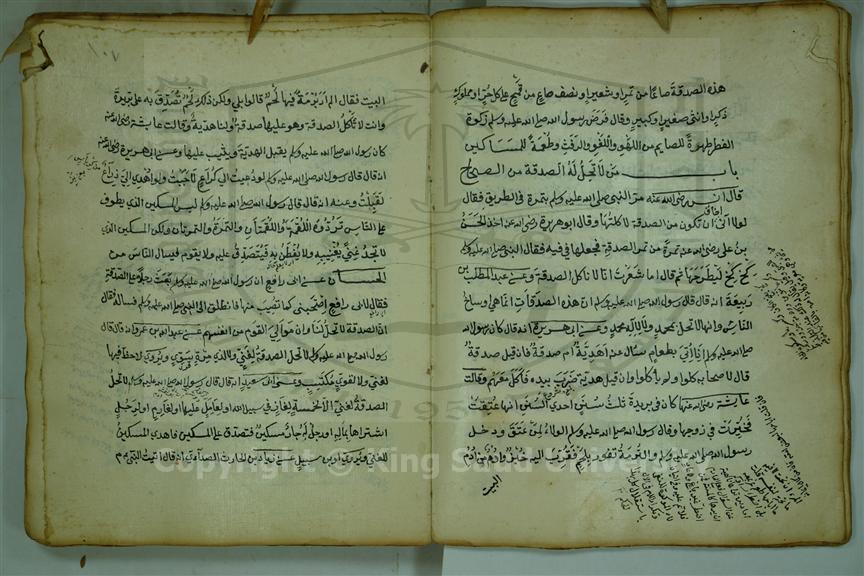 هذه الصدقة صاعًا من تمرٍ او شعيرٍ او نصف صاعٍ من قمحٍ على كل حُرٍّ او مملوكٍ
ذكرٍ او انثى صغيرٍ او كبيرٍ وقال فرض رسول الله صلى الله عليه وسلم زكوة
الفطر طهرةً للصايم من اللغو والرفث وطعمةً للمساكين
باب من لا تحلّ له الصدقة من الصحاح
قال انس رضي الله عنه مرّ النبي صلى الله عليه وسلم بتمرة في الطريق فقال
لولا انى اخاف ان تكون من الصدقة لاكلتها وقال ابو هريرة رضي الله عنه اخذ الحسنُ
بن على رضي الله عنه تمرةً من تمر الصدقة فجعلها في فيه فقال النبي صلى الله عليه وسلم
كخ كخ ليطرحها ثم قال اما شعرت انّا لا ناكل الصدقة وعن عبد المطلب بن
ربيعة انه قال قال رسول الله صلى الله عليه وسلم ان هذه الصدقات انما هي اوساخ
الناس وانها لا تحل لمحمد ولا لآل محمد وعن ابي هريرة انه قال كان رسول الله
صلى الله عليه وسلم اذا اُتى بطعام سأل عنه اهديةٌ ام صدقةٌ فان قيل صدقةٌ
قال لاصحابه كلوا ولم ياكل وان قيل هديّة ضرب بيده فاكل معهم وقالت
عايشة رضي الله عنها كان في بريرة ثلث سُنَنٍ احدى السُّنن انها عُتِقت
فخُيّرت في زوجها وقال رسول الله صلى الله عليه وسلم الولاء لمن عَتَق ودخل
رسول الله صلى الله عليه وسلم والبُرمة تفور بلحم فقُرّب اليه خبزٌ واُدمٌ من اُدم
البيت
١٠٧
البيت فقال الم ار بُرمةً فيها لحم قالوا بلى ولكن ذلك لحمٌ تُصدّق به على بريرة
وانت لا تاكل الصدقة قال هو عليها صدقة ولنا هديةٌ وقالت عايشة رضي الله عنها
كان رسول الله صلى الله عليه وسلم يقبل الهديّة ويثيب عليها وعن ابى هريرة رضي الله عنه
انه قال قال رسول الله صلى الله عليه وسلم لو دُعيت الى كُراعٍ لاجبتُ ولو اُهدى الىّ ذراع
لقبلتُ وعنه انه قال قال رسول الله صلى الله عليه وسلم ليس المسكين الذى يطوف
على الناس تردّه اللقمة واللقمتان والتمرة والتمرتان ولكن المسكين الذى
لا يجد غِنىً يُغنيه ولا يُفطَن به فيُتصدّق عليه ولا يقوم فيسال الناس من
الحسان عن ابى رافع ان رسول الله صلى الله عليه وسلم بعث رجلًا على الصدقة
فقال لابى رافع اصحبنى كيما تصيب منها فانطلق الى النبي صلى الله عليه وسلم فساله فقال
انّ الصدقة لا تحلّ لنا وان موالى القوم من انفسهم عن عبد الله بن عمرو انه قال قال
رسول الله صلى الله عليه وسلم لا تحلّ الصدقة لغنىّ ولا لذى مِرّةٍ سوىّ ويُروى لا حظّ فيها
لغنى ولا لقوىّ مكتسب وعن ابى سعيد انه قال قال رسول الله صلى الله عليه وسلم لا تحلّ
الصدقة لغنىّ الّا لخمسةٍ لغازٍ في سبيل الله او لعاملٍ عليها او لغارمٍ او لرجلٍ
اشتراها بماله او رجلٍ له جارٌ مسكينٌ فتصدّق على المسكين فاهدى المسكينُ
للغنى ويُروى او ابن سبيل عن زياد بن الحارث الصدائى انه قال اتيت النبى
Copyright © King Saud University
1957